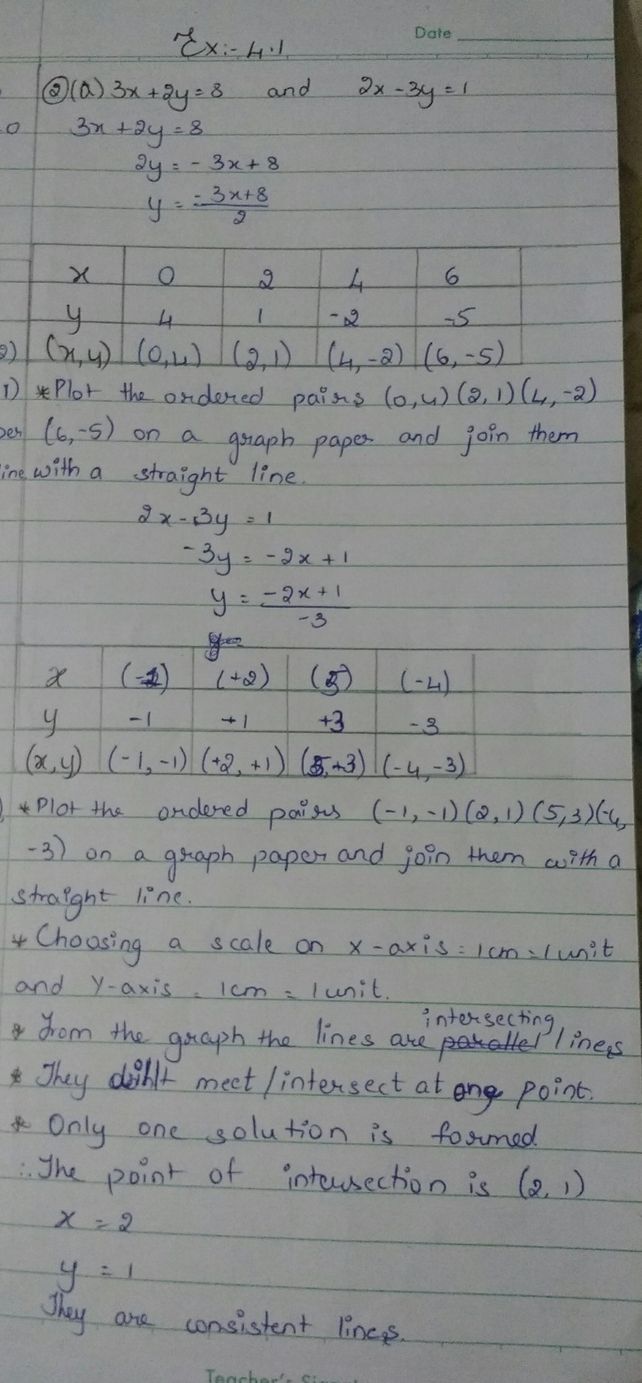 Date
Ex:- 4.1
②(a) 3x+2y=8 and 2x-3y=1
3x+2y=8
2y = -3x+8
y = -3x+8
2
x 0 2 4 6
y 4 1 -2 -5
(x,y) (0,4) (2,1) (4,-2) (6,-5)
1) *Plot the ordered pairs (0,4)(2,1)(4,-2)
(6,-5) on a graph paper and join them
with a straight line.
2x-3y = 1
-3y = -2x+1
y = -2x+1
-3
x (-1) (+2) (5) (-4)
y -1 +1 +3 -3
(x,y) (-1,-1) (+2,+1) (5,+3) (-4,-3)
*Plot the ordered pairs (-1,-1)(2,1)(5,3)(-4,
-3) on a graph paper and join them with a
straight line.
* Choosing a scale on x-axis = 1cm = 1 unit
and Y-axis = 1cm = 1 unit.
intersecting
* From the graph the lines are parallel lines
* They meet/intersect at one point.
* Only one solution is formed
∴ The point of intersection is (2,1)
x = 2
y = 1
They are consistent lines.
Teacher's